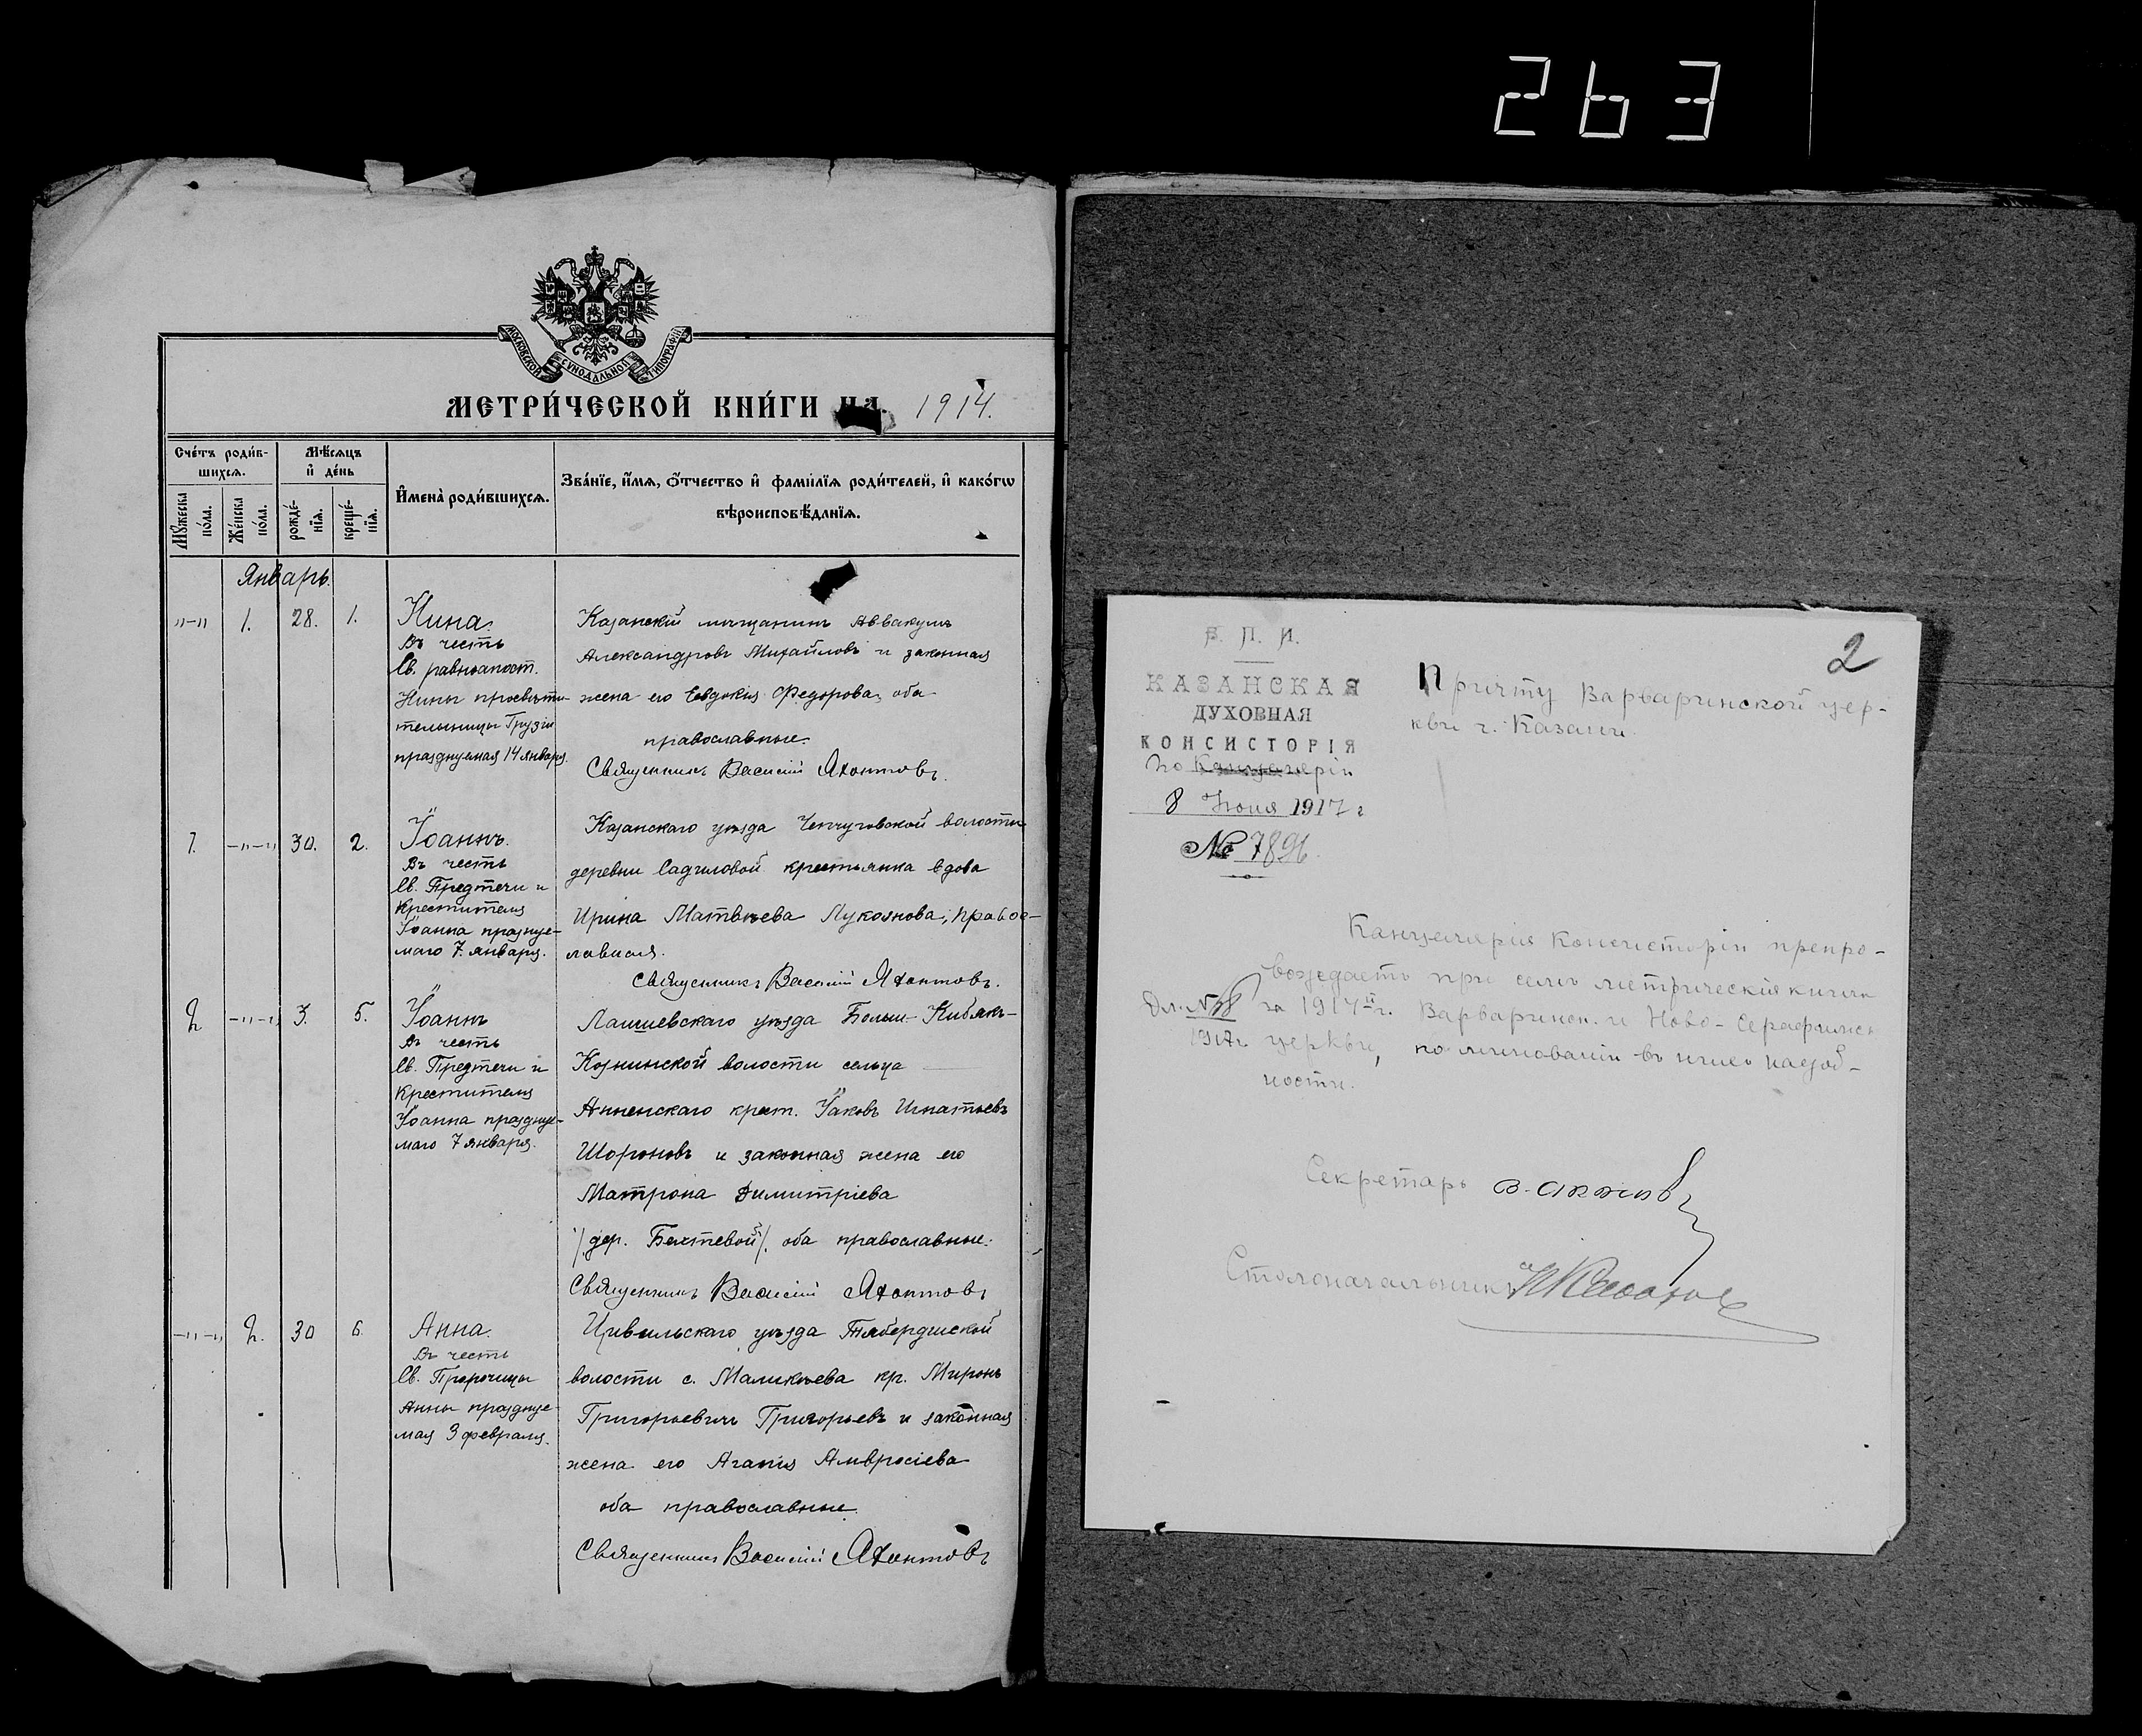 263
МОСКОВСКОЙ СѴНОДАЛЬНОЙ ТИПОГРАФІИ
МЕТРИ́ЧЕСКОЙ КНИ́ГИ НА 1914.
Сче́тъ роди́в-
шихсѧ.
Мꙋжеска
по́ла.
Же́нска
по́ла.
Мѣ́сѧцъ
и҆ де́нь
рожде́-
нїѧ.
креще́-
нїѧ.
И҆мена̀ роди́вшихсѧ.
Зва́нїе, и҆́мѧ, ѻ҆́тчество и҆ фами́лїѧ роди́телей, и҆ како́гѡ
вѣроисповѣ́данїѧ.
Январь.
"-" 1. 28. 1.
Нина.
Въ честь
Св. равноапост.
Нины просвѣти-
тельницы Грузіи
празднуемая 14 января.
Казанскій мѣщанинъ Аввакумъ
Александровъ Михайловъ и законная
жена его Евдокія Федорова, оба
православные.
Священникъ Василій Яхонтовъ.
1. -"-" 30. 2.
Іоаннъ.
Въ честь
Св. Предтечи и
Крестителя
Іоанна праздну-
емаго 7 января.
Казанскаго уѣзда Чепчуговской волости
деревни Садиловой крестьянка вдова
Ирина Матвѣева Лукоянова, правос-
лавная.
Священникъ Василій Яхонтовъ.
2 -"-" 3. 5.
Іоаннъ
въ честь
Св. Предтечи и
Крестителя
Іоанна праздну-
емаго 7 января.
Лаишевскаго уѣзда Больш-Кибякъ-
Козинской волости сельца
Анненскаго крест. Іаковъ Игнатьевъ
Шороновъ и законная жена его
Матрона Димитріева
/дер. Бахтевой/. оба православные.
Священникъ Василій Яхонтовъ
-"-" 2. 30 6.
Анна.
Въ честь
Св. Пророчицы
Анны праздуе-
мая 3 февраля.
Цивильскаго уѣзда Тябердинской
волости с. Маликѣева кр. Миронъ
Григорьевичъ Григорьевъ и законная
жена его Агапія Амвросіева
оба православные.
Священникъ Василій Яхонтовъ
2
В. П. И.
КАЗАНСКАЯ
ДУХОВНАЯ
КОНСИСТОРІЯ
По Канцеляріи
8 Іюня 1917 г
№ 7896.
Причту Варваринской цер-
кви г. Казани
Канцелярія Консисторіи препро-
вождаетъ при семъ метрическія книги
за 1914 г. Варваринск. и Ново-Серафимск
церкви, по минованіи въ нихъ надоб-
ности.
Секретарь
Столоначальникъ